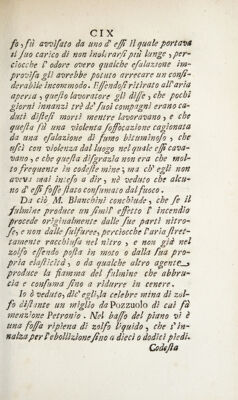 CIX
fo, fù avvisato da uno d' essi il quale portava
il suo carico di non inoltrarsi più lunge, per-
ciocchè l' odore overo qualche esalazione im-
provisa gli avrebbe potuto arrecare un consi-
derabile incommodo. Essendosi ritirato all'aria
aperta, questo lavoratore gli disse, che pochi
giorni innanzi trè de' suoi compagni erano ca-
duti distesi morti mentre lavoravano, e che
questa fù una violenta soffocazione cagionata
da una esalazione di fumo bituminoso, che
uscì con violenza dal luogo nel quale essi cava-
vano, e che questa disgrazia non era che mol-
to frequente in codeste mine; ma ch' egli non
avvi mai inteso a dire, nè veduto che alcu-
no d' essi fosse stato consumato dal fuoco.
Da ciò M. Bianchini conchiude, che se il
fulmine produce un simil effetto l' incendio
procede originalmente dalle sue parti nitro-
se, e non dalle sulfuree, perciocche l'aria stret-
tamente racchiusa nel nitro, e non già nel
zolfo essendo posta in moto o dalla sua pro-
pria elasticità, o da qualche altro agente
produce la fiamma del fulmine che abbru-
cia e consuma sino a ridurre in cenere.
Io ò veduto, dic' egli, la celebre mina di zol-
fo distante un miglio da Pozzuolo di cui fà
menzione Petronio. Nel basso del piano vi è
una fossa ripiena di zolfo liquido, che s' in-
nalza per l'ebollizione sino a dieci o dodici piedi.
Codesta